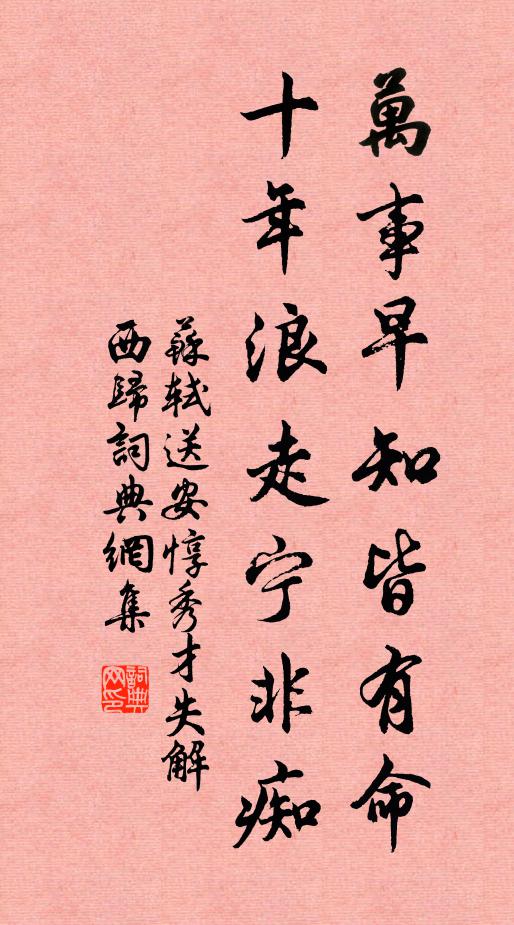 萬事早知皆有命
十年浪走宁非痴
蘇軾送安惇秀才失解
西歸詞典網集
詞典
网印